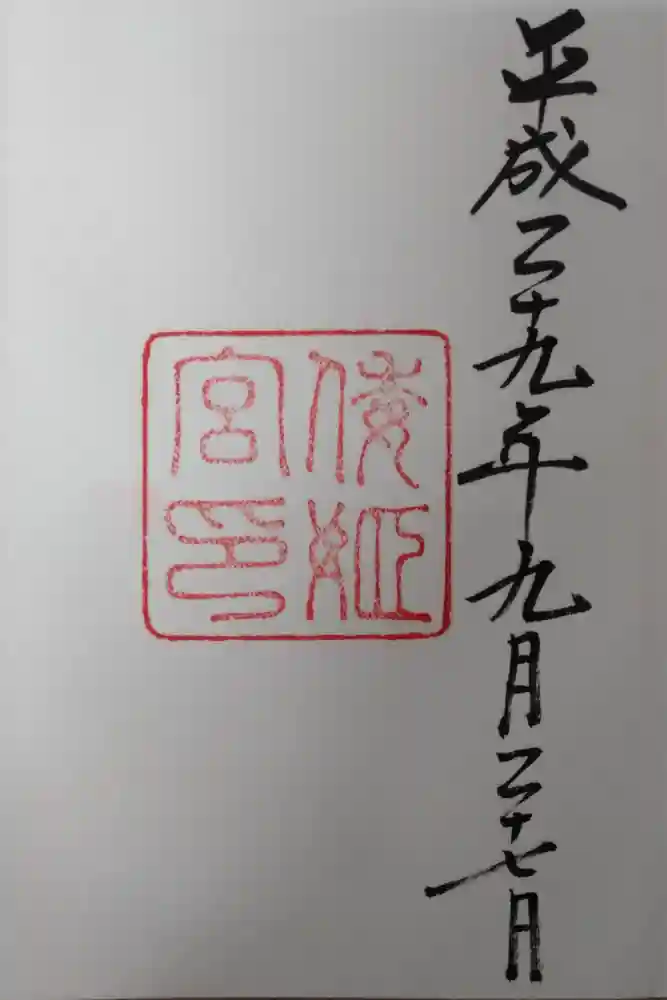 平成二十九年九月二十七日
倭姫
宮印